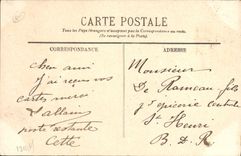 CARTE POSTALE
Tous les Pays Étrangers n'acceptent pas la Correspondance au recto.
(Se renseigner à la Poste)
CORRESPONDANCE
ADRESSE
cher ami
J'ai reçu vos
cartes merci
d'allain
poste restante
Cette
Monsieur
De Rameau fils
St Henri
B. D. R